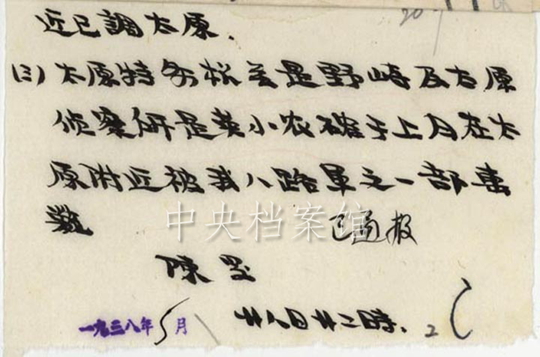 近已調太原.
(三)太原特务机关長野崎及太原
侦察所長英小农確于上月在太
原附近被我八路軍之一部击
斃
已通报
陳
一九三八年5月 廿八日廿二時.
中央档案馆